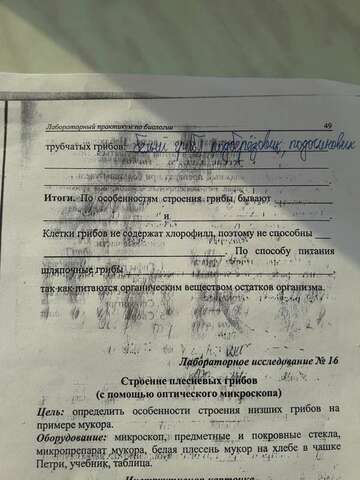 Лабораторный практикум по биологии 49
трубчатых грибов: белый гриб, подберёзовик, подосиновик
Итоги. По особенностям строения грибы бывают
и
Клетки грибов не содержат хлорофилл, поэтому не способны
. По способу питания
шляпочные грибы
так как питаются органическим веществом остатков организма.
Лабораторное исследование № 16
Строение плесневых грибов
(с помощью оптического микроскопа)
Цель: определить особенности строения низших грибов на
примере мукора.
Оборудование: микроскоп, предметные и покровные стекла,
микропрепарат мукора, белая плесень мукор на хлебе в чашке
Петри, учебник, таблица.
Инструктивная карточка